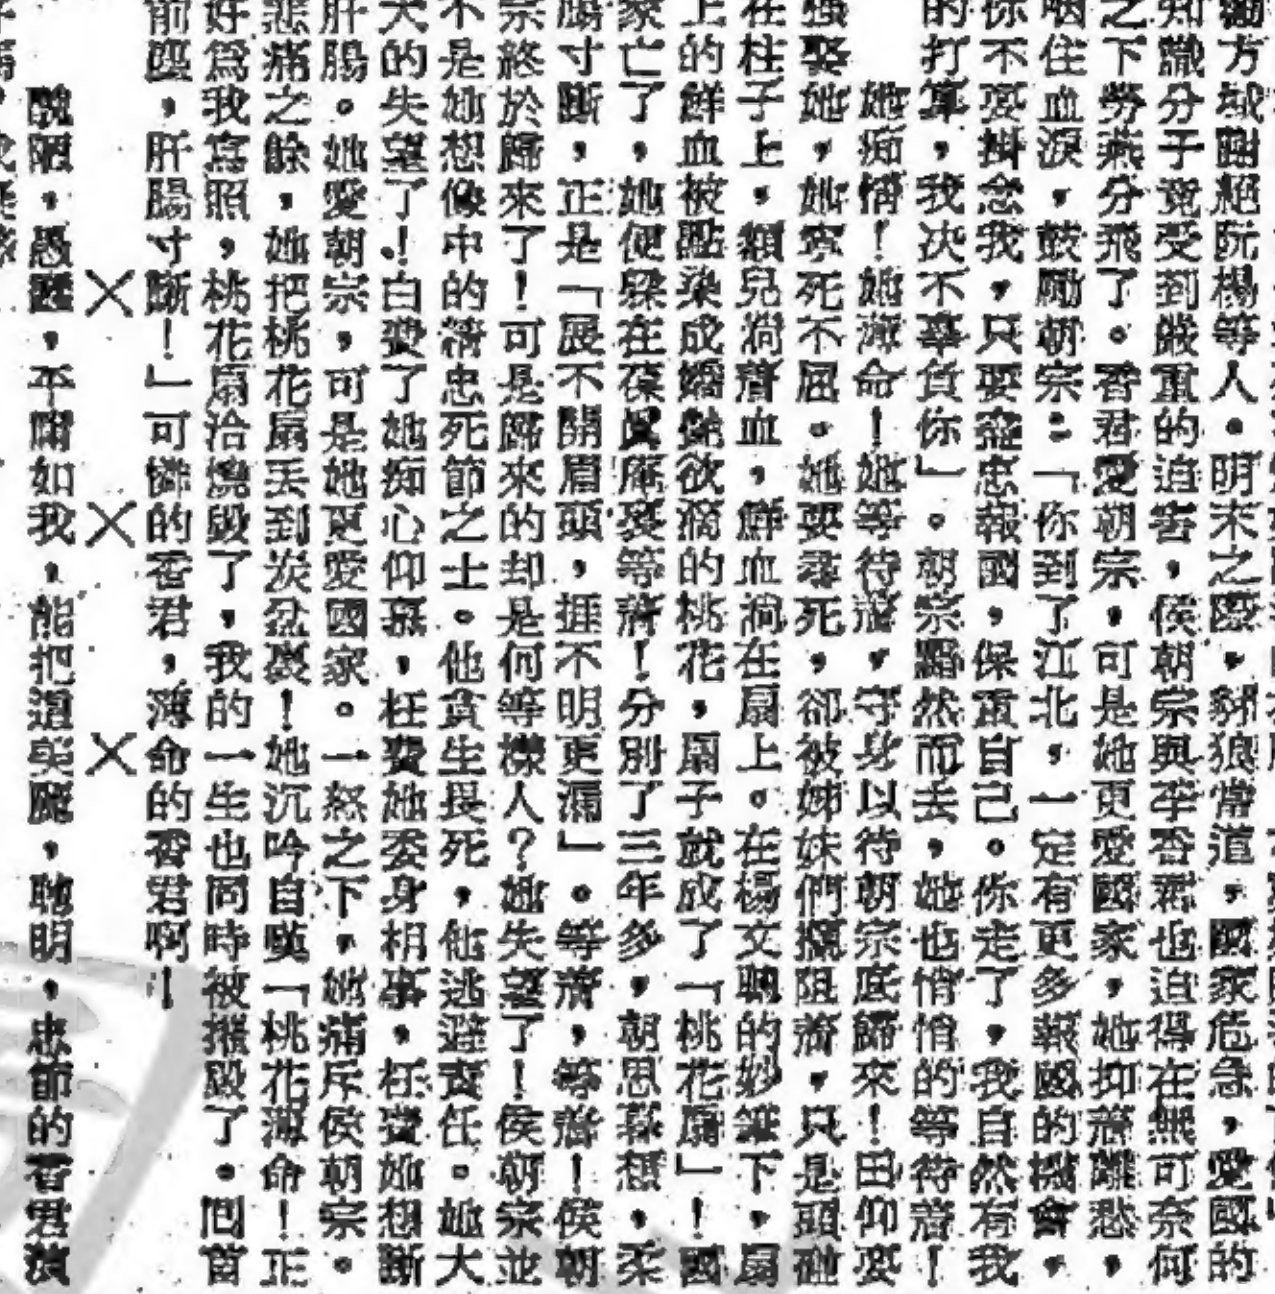 方域國絕阮楊等人。明末之際，豺狼當道，國家危急，愛國的
知識分子竟受到嚴重的迫害，侯朝宗與李香君也迫得在無可奈何
之下勞燕分飛了。香君愛朝宗，可是她更愛國家，她抑着離愁，
咽住血淚，鼓勵朝宗：「你到了江北，一定有更多報國的機會，
你不要掛念我，只要盡忠報國，保重自己。你走了，我自然有我
的打算，我決不辜負你」。朝宗黯然而去，她也悄悄的等待着！
她痴情！她薄命！她等待着，守身以待朝宗底歸來！田仰要
強娶她，她寧死不屈。她要尋死，卻被姊妹們攔阻着，只是頭碰
在柱子上，額兒淌着血，鮮血淌在扇上。在楊文聰的妙筆下，扇
上的鮮血被點染成嬌艷欲滴的桃花，扇子就成了「桃花扇」！國
家亡了，她便在葆眞庵裏等着！分別了三年多，朝思暮想，柔
腸寸斷，正是「展不開眉頭，捱不明更漏」。等着，等着！侯朝
宗終於歸來了！可是歸來的却是何等樣人？她失望了！侯朝宗並
不是她想像中的精忠死節之士。他貪生畏死，他逃避責任。她大
大的失望了！白費了她痴心仰慕，枉費她委身相事，枉費她想斷
肝腸。她愛朝宗，可是她更愛國家。一怒之下，她痛斥侯朝宗。
悲痛之餘，她把桃花扇丟到炭盆裏！她沉吟自嘆「桃花薄命！正
好爲我寫照，桃花扇洽燒毀了，我的一生也同時被摧毀了。回首
前塵，肝腸寸斷！」可憐的香君，薄命的香君啊！
×　×　×
醜陋，愚蠢，平庸如我，能把這美麗，聰明，忠節的香君演